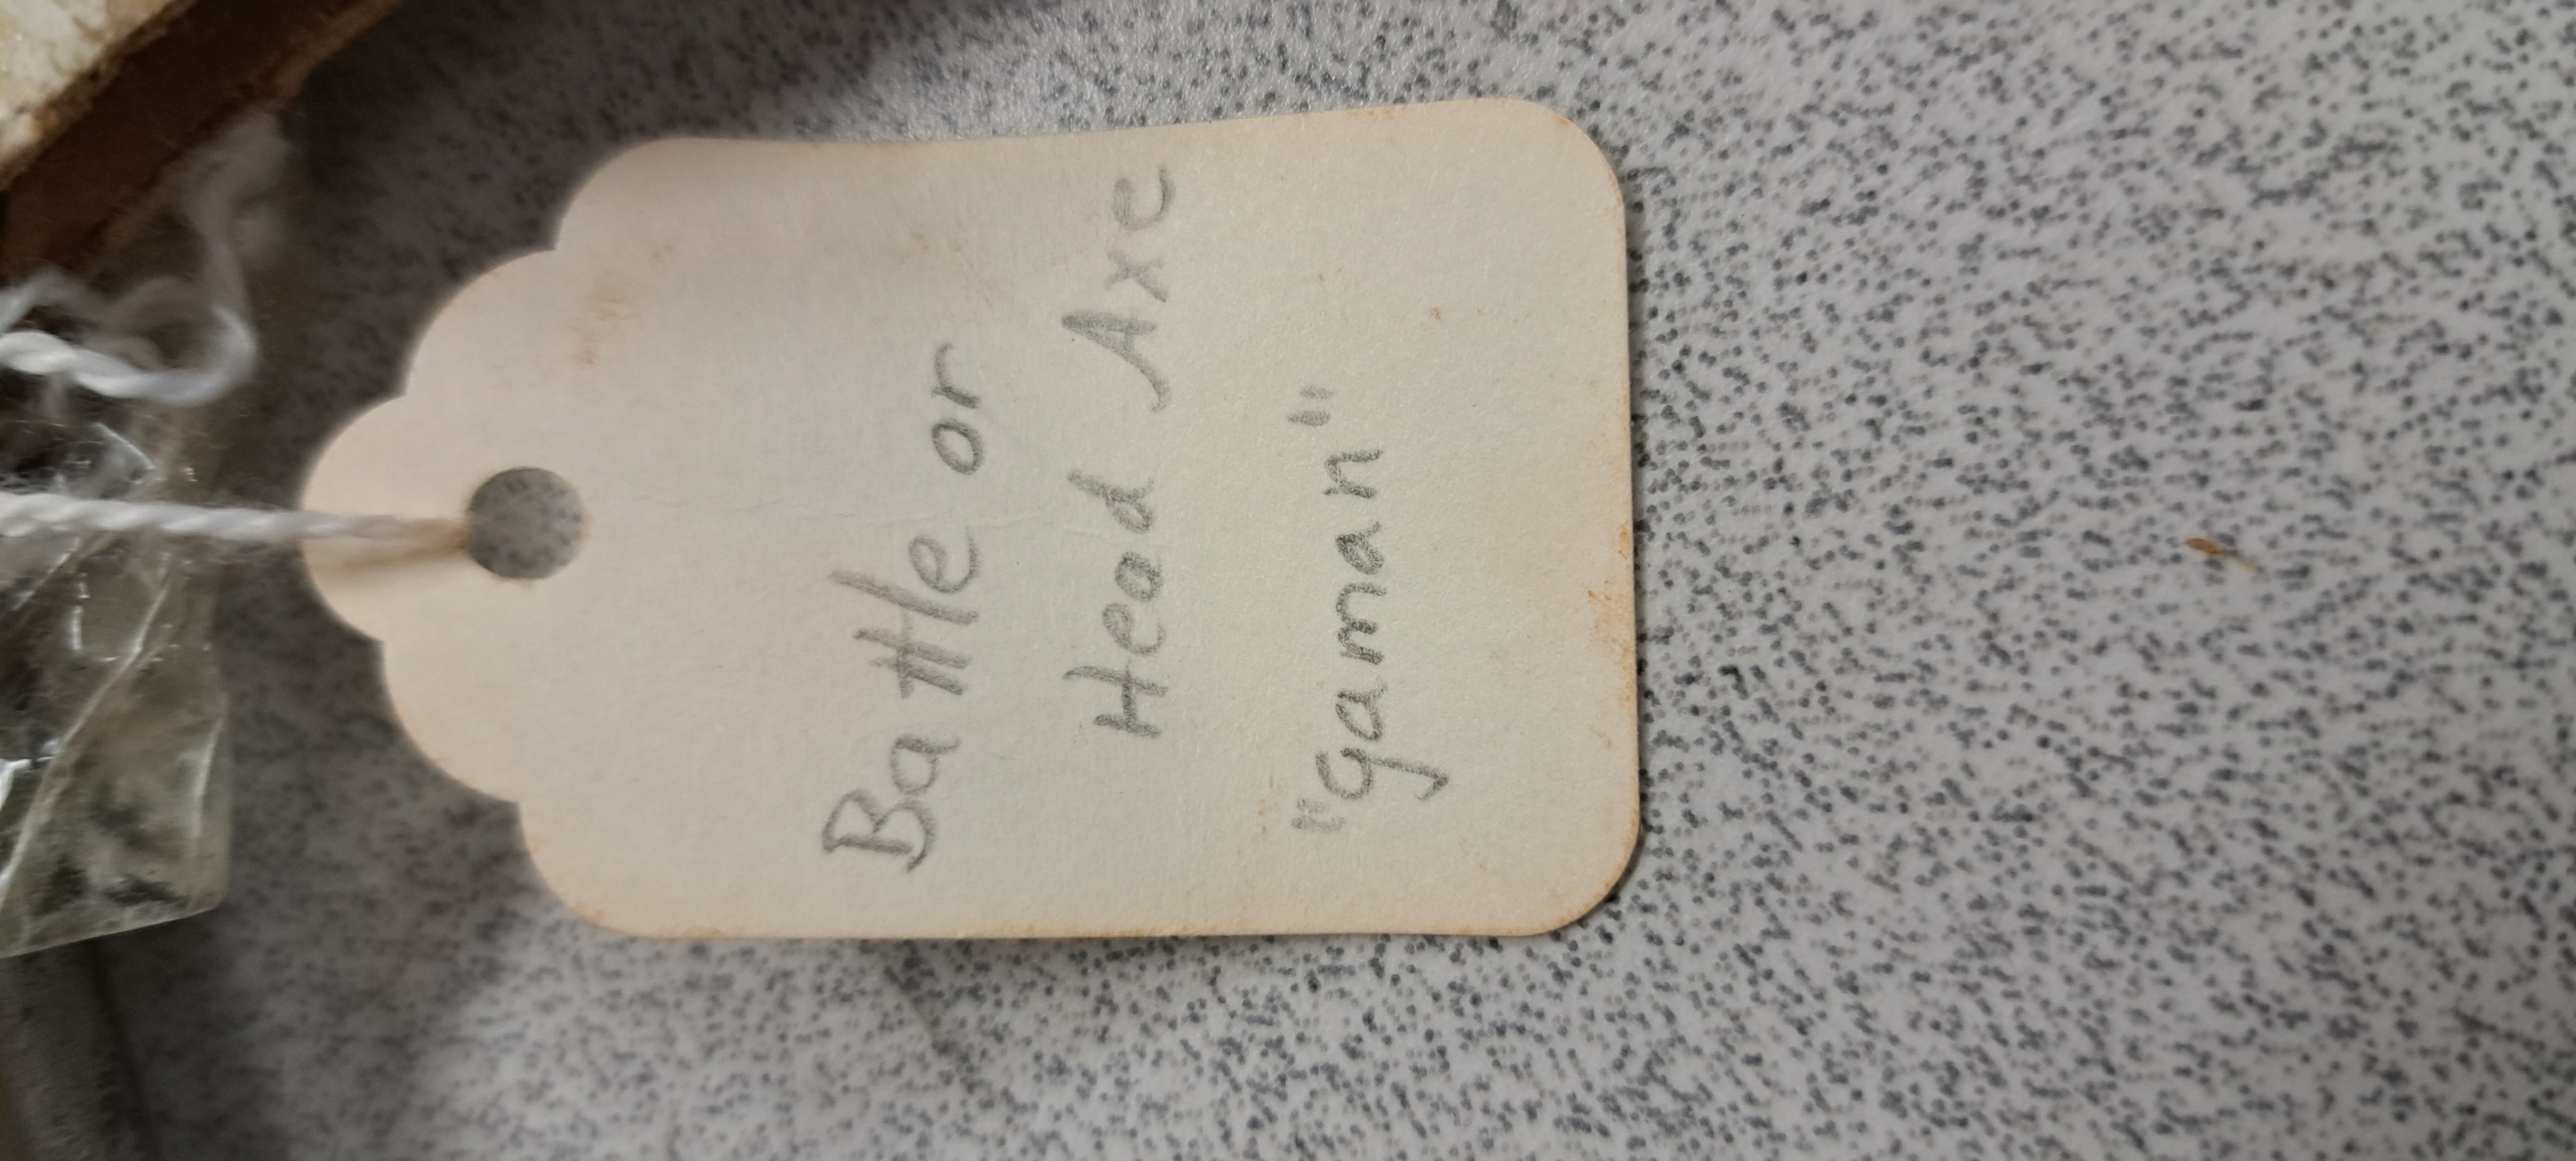 Battle or
Head Axe
"gaman"